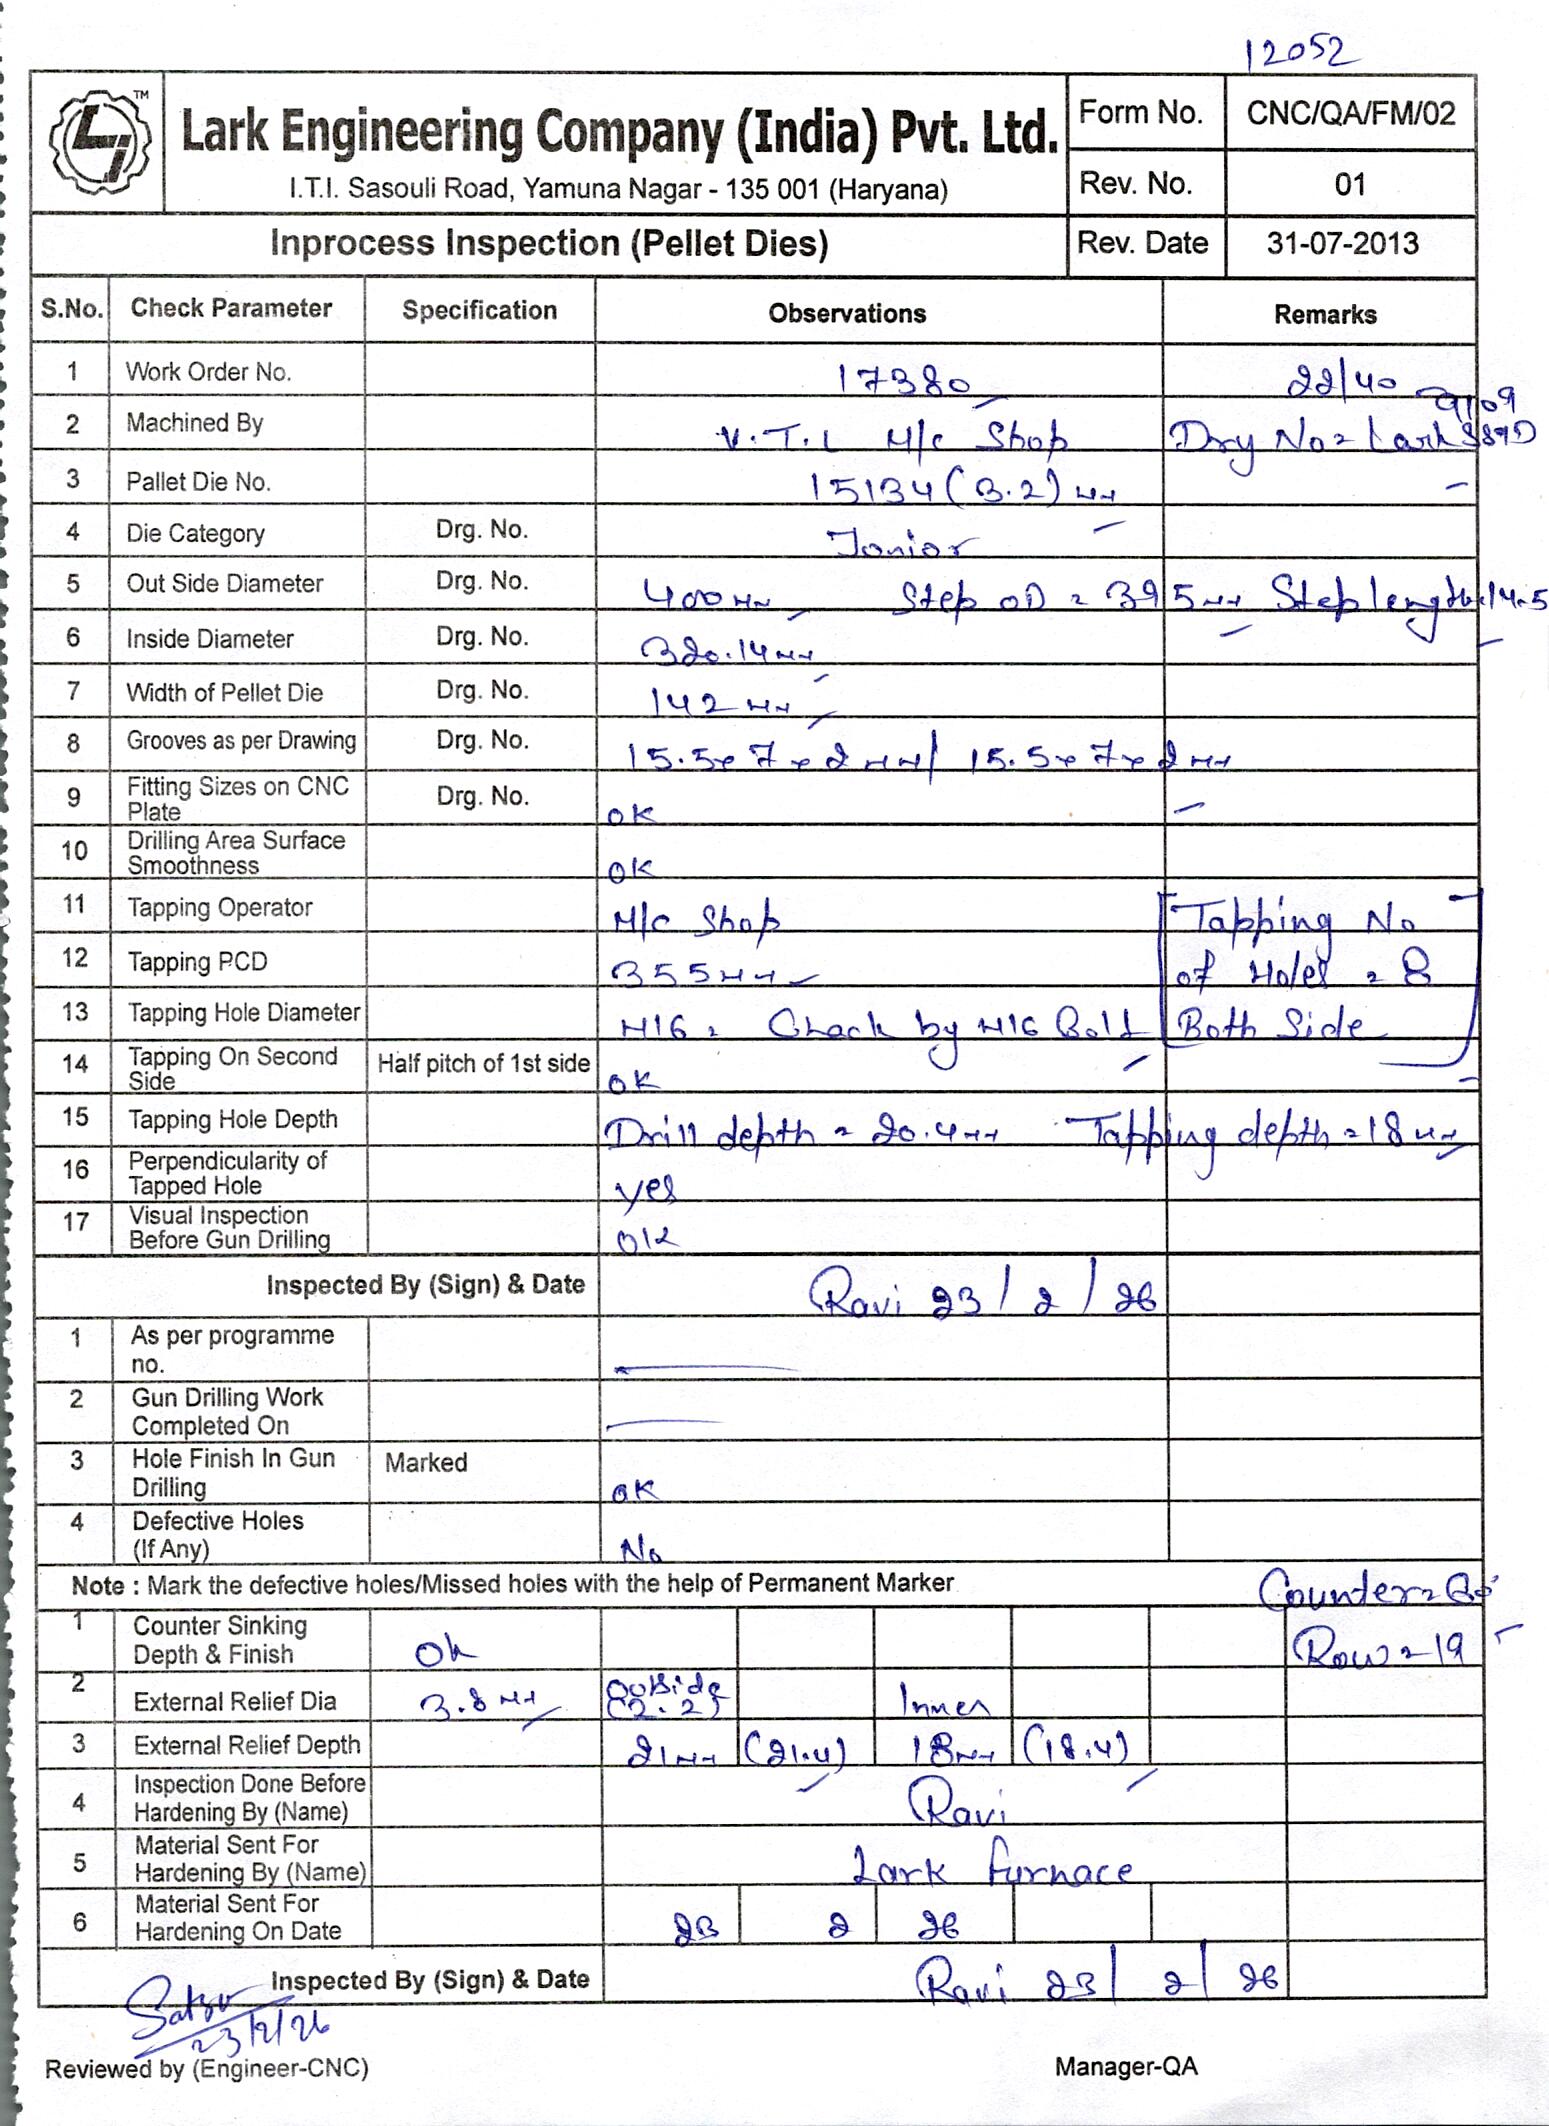 12052
TM
Lark Engineering Company (India) Pvt. Ltd.
I.T.I. Sasouli Road, Yamuna Nagar - 135 001 (Haryana)
Form No. CNC/QA/FM/02
Rev. No. 01
Inprocess Inspection (Pellet Dies) Rev. Date 31-07-2013
S.No. Check Parameter Specification Observations Remarks
1 Work Order No. 17380 22/40
2 Machined By V.T.L M/c Shop Dry No = Lark
3 Pallet Die No. 15134 (3.2) mm
4 Die Category Drg. No. Junior
5 Out Side Diameter Drg. No. 400 mm Step OD = 395 mm Step length = 14.5
6 Inside Diameter Drg. No. 320.14 mm
7 Width of Pellet Die Drg. No. 142 mm
8 Grooves as per Drawing Drg. No. 15.5 x 7 x 2 mm / 15.5 x 7 x 2 mm
9 Fitting Sizes on CNC Plate Drg. No. OK
10 Drilling Area Surface Smoothness OK
11 Tapping Operator M/c Shop Tapping No
12 Tapping PCD 355 mm of Holes = 8
13 Tapping Hole Diameter M16 = Check by M16 Bolt Both Side
14 Tapping On Second Side Half pitch of 1st side OK
15 Tapping Hole Depth Drill depth = 20.4 mm Tapping depth = 18 mm
16 Perpendicularity of Tapped Hole yes
17 Visual Inspection Before Gun Drilling OK
Inspected By (Sign) & Date Ravi 23/2/26
1 As per programme no.
2 Gun Drilling Work Completed On
3 Hole Finish In Gun Drilling Marked OK
4 Defective Holes (If Any) No
Note : Mark the defective holes/Missed holes with the help of Permanent Marker Counter =
1 Counter Sinking Depth & Finish Ok Row = 19
2 External Relief Dia 3.8 mm Outside (2.2) Inner
3 External Relief Depth 21 mm (21.4) 18 mm (18.4)
4 Inspection Done Before Hardening By (Name) Ravi
5 Material Sent For Hardening By (Name) Lark furnace
6 Material Sent For Hardening On Date 23 2 26
Inspected By (Sign) & Date Ravi 23/2/26
23/2/26
Reviewed by (Engineer-CNC) Manager-QA